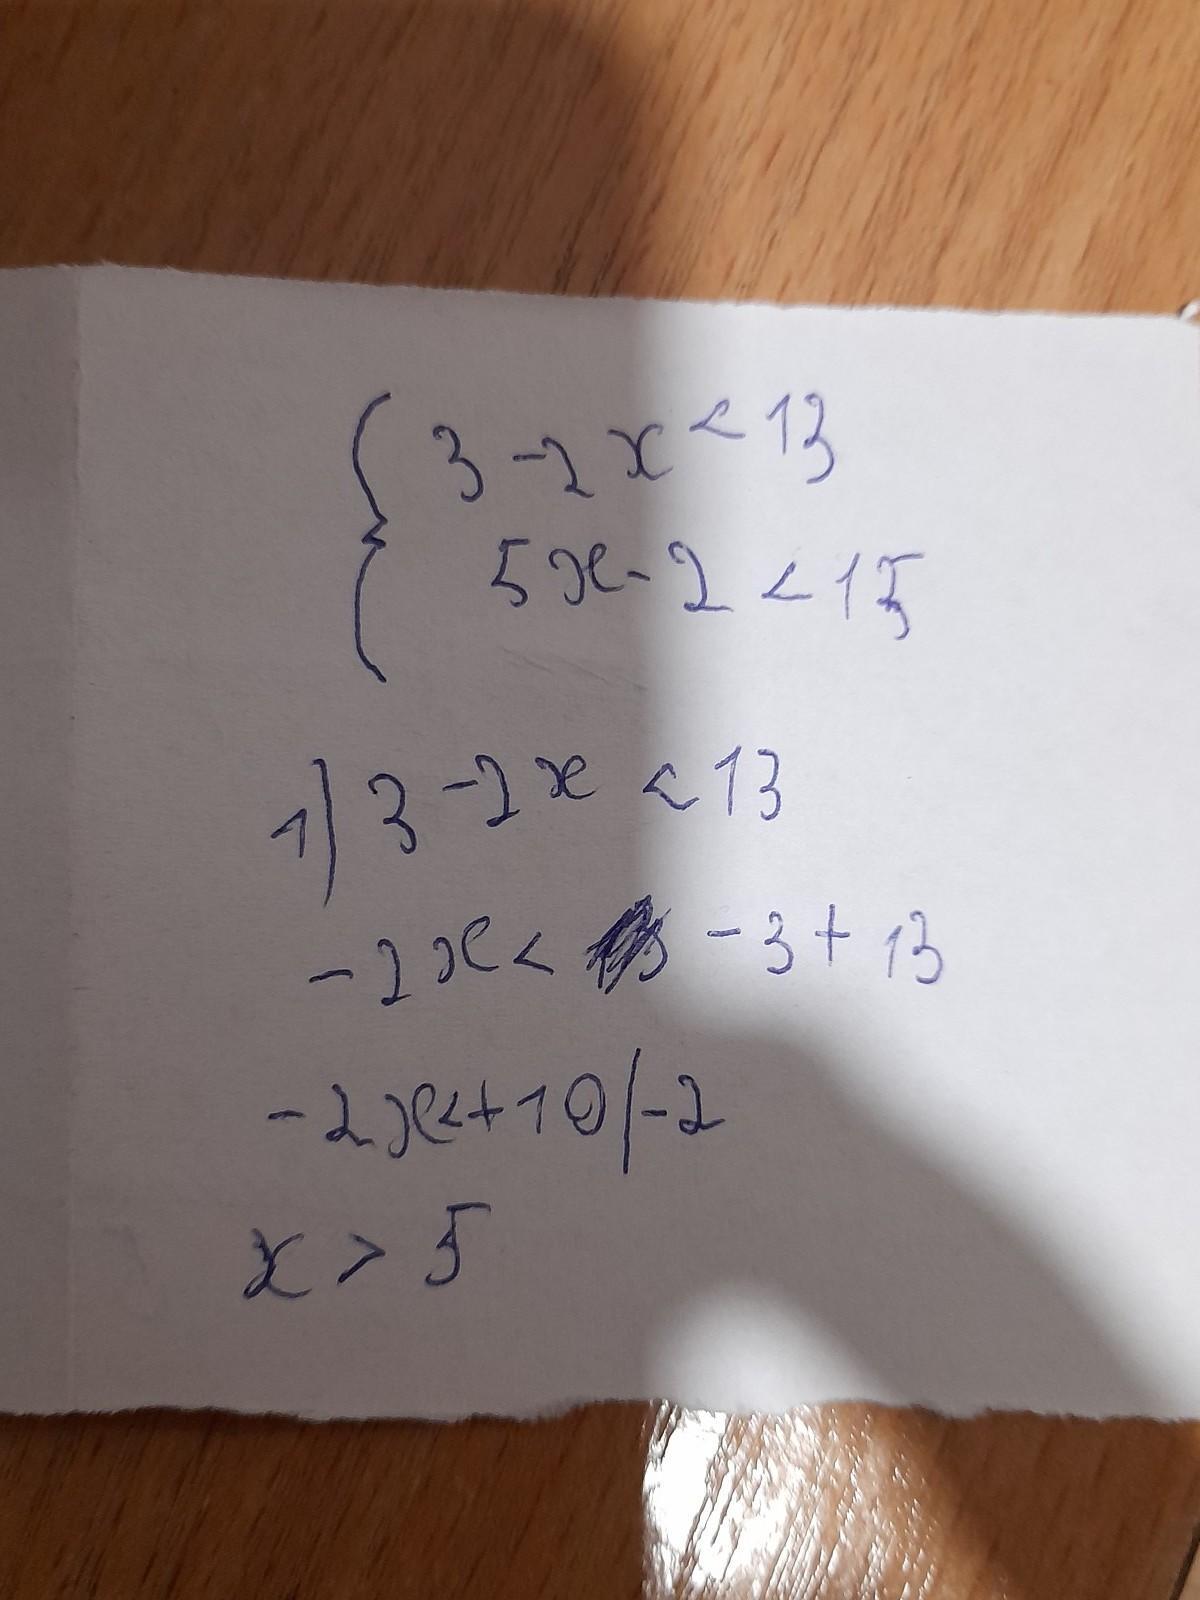 { 3 - 2x < 13
5x - 2 < 15
1) 3 - 2x < 13
-2x < -3 + 13
-2x < +10 | -2
x > 5